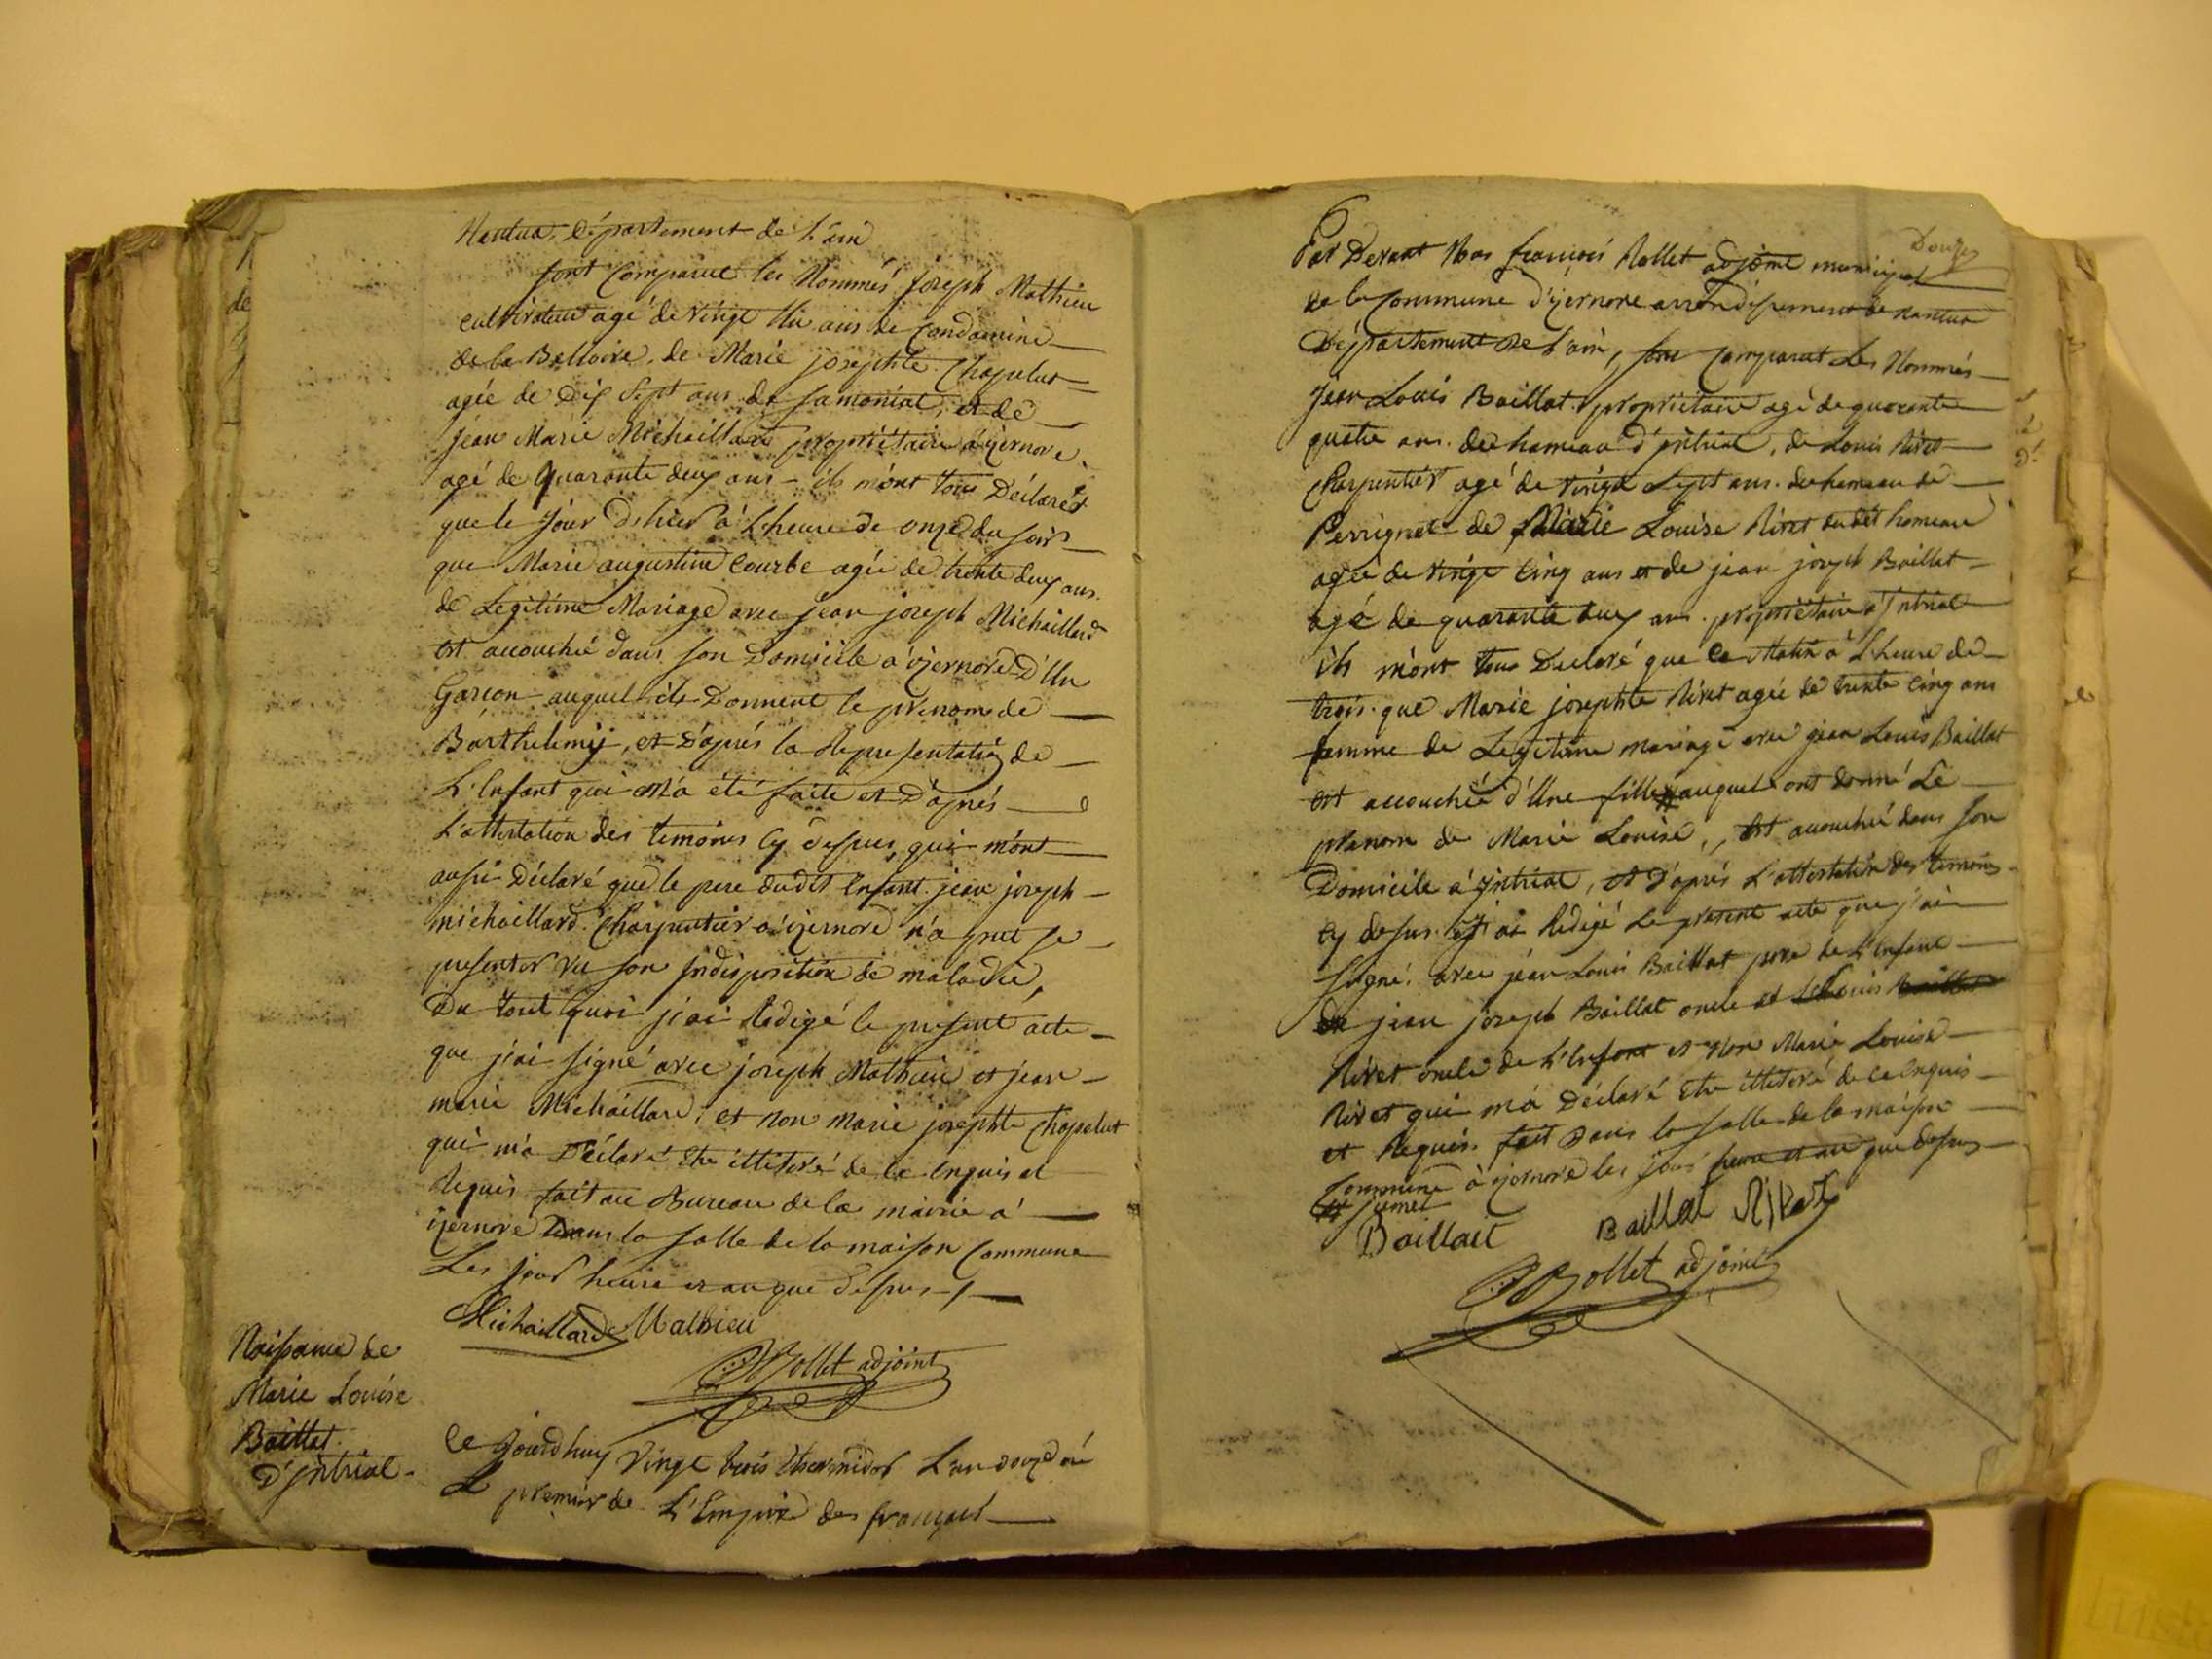 Nantua, Département de L'ain
sont Comparus les Nommés joseph Mathieu
cultivateur agé de vingt Un ans de Condamine
de la Belloire, de Marie josephte Chapelut
agée de Dix Sept ans de Samoniat, et de
Jean Marie Michaillard propriétaire a ijernore
agé de Quarante deux ans - ils m'ont tous Déclarés
que le Jour d'hier à L'heure de onze du soir
que Marie augustine Courbe agée de trente deux ans
de Legitime Mariage avec jean joseph Michaillard
est accouchée dans son Domicile a ijernore D'Un
Garcon auquel ils Donnent le prenom de
Barthelemij, et D'aprés la Representation de
L'Enfant qui m'a été faite et D'aprés
L'attestation des temoins Cy dessus, qui m'ont
aussi Déclaré que le pere dudit Enfant jean joseph
michaillard Charpentier a ijernore n'a peut se
presenter vu son Indisposition de maladie,
Du tout quoi j'ai Redigé le present acte
que j'ai signé avec joseph Mathieu et jean
marie Michaillard, et non marie josephte Chapelut
qui m'a Déclaré Etre illiteré de ce Enquis et
Requis fait au Bureau de la mairie a
ijernore Dans la salle de la maison Commune
Les jour heure et an que dessus
Michaillard Mathieu
Rollet adjoint
Naissance de
Marie Louise
Baillat
D'Intriat
Ce Jourdhuy Vingt trois thermidor L'an douze ou
L premier de L'Empire des français
Douze
Par Devant Nous françois Rollet adjoint municipal
de la Commune d'ijernore arrondissement de nantua
Département de L'ain, sont Comparus Les Nommés
Jean Louis Baillat propriétaire agé de quarante
quatre ans du hameau d'Intriat, de Louis Rivet
Charpentier agé de vingt Sept ans du hameau de
Perrignat de Marie Louise Rivet dudit hameau
agée de vingt Cinq ans et de jean joseph Baillat
agé de quarante deux ans propriétaire a Intriat
ils m'ont tous Declaré que ce Matin à L'heure de
trois que Marie josephte Rivet agée de trente Cinq ans
femme de Legitime mariage avec jean Louis Baillat
est accouchée d'Une fille auquel ont donné Le
prenom de Marie Louise, Est accouchée dans son
Domicile a Intriat, et D'aprés L'attestation des temoins
Cy dessus j'ai Redigé Le present acte que j'ai
Signé avec jean Louis Baillat pere de L'Enfant
jean joseph Baillat oncle et Louis
Rivet oncle de L'Enfant et non Marie Louise
Rivet qui m'a Déclaré Etre illiteré de ce Enquis
et Requis fait Dans la salle de la maison
Commune à ijernore les jour heure et an que dessus
Baillait Baillat Rivet
Rollet adjoint